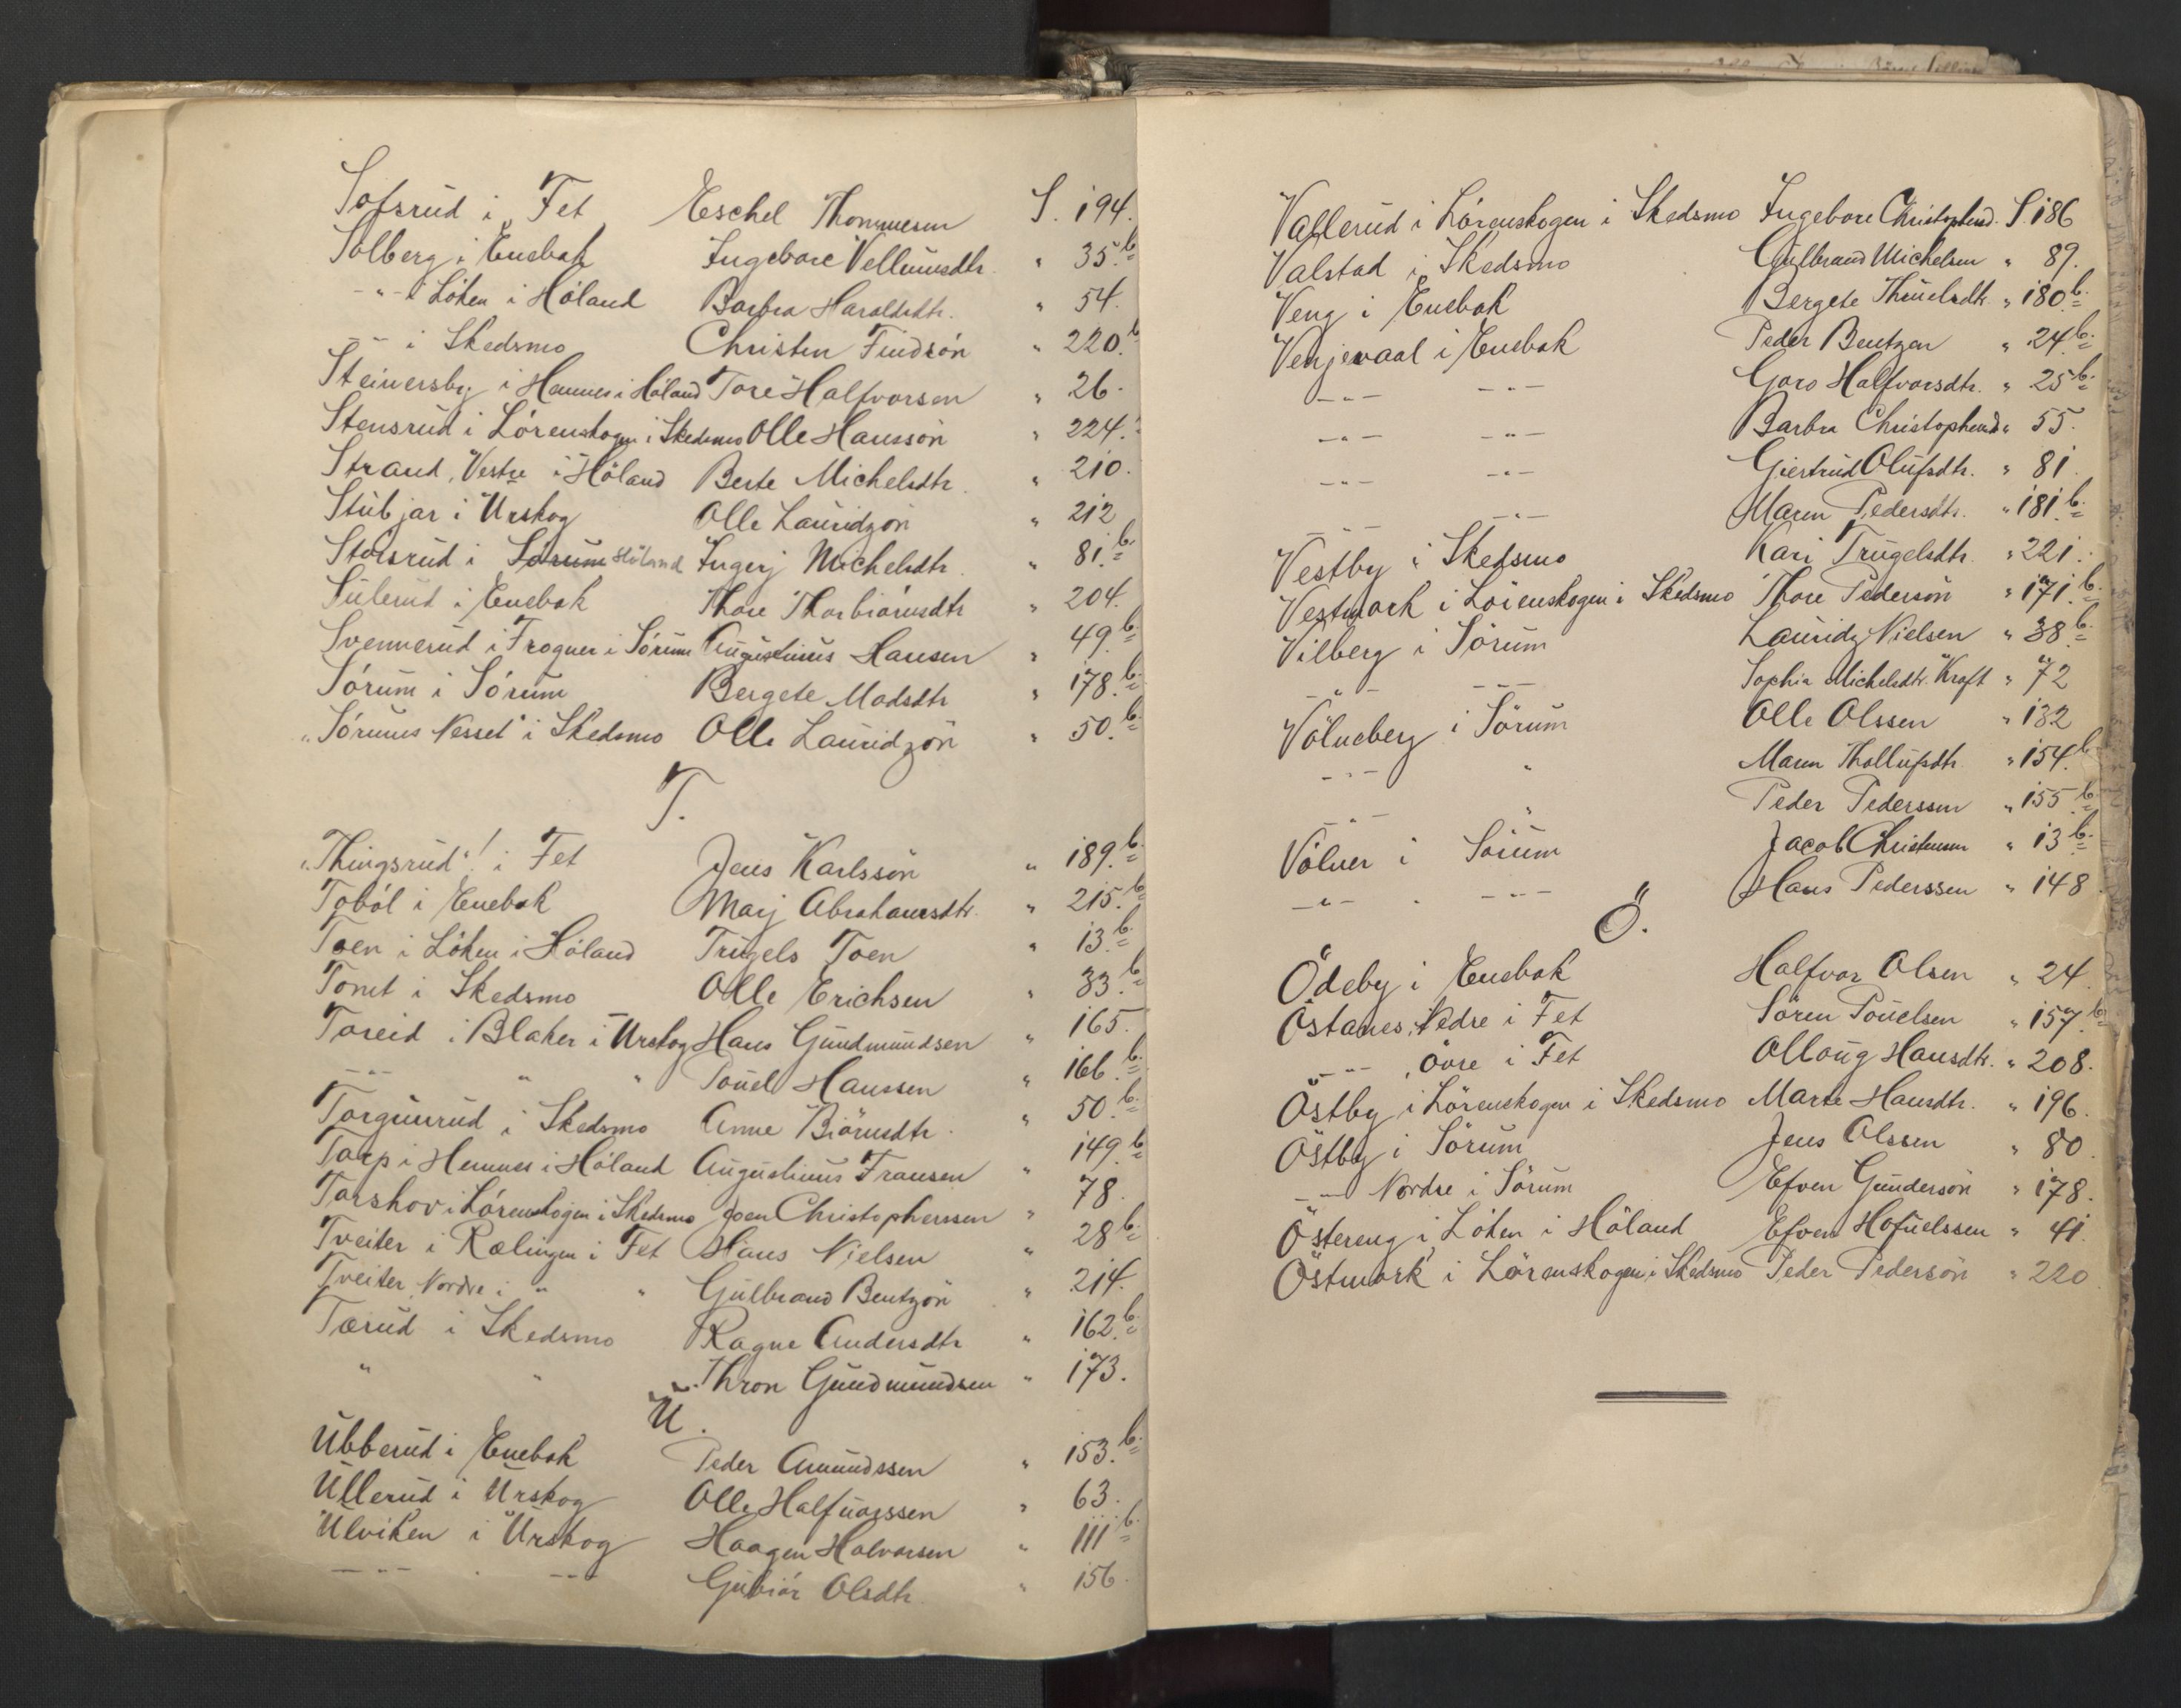 Sofsrud i Fet Eschel Thommesen S. 194.
Solberg i Enebak Ingebore Vellumsdtr. " 35.b.
-"- i Löken i Höland Barbra Haraldsdtr. " 54.
-"- i Skedsmo Christen Findsön " 220.b
Steinersby i Hemnes i Höland Tore Halfvorsen " 26.
Stensrud i Lörenskogen i Skedsmo Olle Hansson " 224.
Strand, Vestre i Höland Berte Michelsdtr. " 210.
Stubjar i Urskog Olle Lauridzön " 212
Stösrud i Sörum Höland Ingerj Michelsdtr. " 81.b.
Sulerud i Enebak Thore Thorbiörnsdtr " 204.
Svennerud i Frogner i Sörum Augustinus Hansen " 49.b.
Sörum i Sörum Bergete Madsdtr " 178.b.
"Sörums Nesset" i Skedsmo Olle Lauridzön " 50.b.
T.
"Thingsrud"! i Fet Jens Karlssön " 189.b.
Toböl i Enebak Marj Abrahamsdtr. " 215.b.
Toen i Löken i Höland Trugels Toen " 13.b.
Tomt i Skedsmo Olle Erichsen " 33.b.
Toreid i Blaker i Urskog Hans Gundmundsen " 165.
-"- " " Pouel Hanssen " 166.b.
Torgunrud i Skedsmo Anne Biörnsdtr. " 50.b.
Torp i Hemnes i Höland Augustinus Fransen " 149.b
Torshov i Lörenskogen i Skedsmo Joen Christopherssen " 78.
Tveiter i Rælingen i Fet Hans Nielsen " 28.b.
Tveiter, Nordre i " " Gulbrand Bentzön " 214.
Tærud i Skedsmo Ragne Andersdtr " 162.b.
" " Thron Gundmundsen " 173.
U.
Ubberud i Enebak Peder Amundssen " 153.b.
Ullerud i Urskog Olle Halfuorssen " 63.
Ulviken i Urskog Haagen Halvorsen " 111.b.
-"- -"- Gubiör Olsdtr " 156.
Vallerud i Lörenskogen i Skedsmo Ingebore Christophersd. S. 186
Valstad i Skedsmo Gulbrand Michelsen " 89.
Veng i Enebak Bergete Thruelsdtr. " 180.b.
Venjevaal i Enebak Peder Bentzen " 24.b.
-"- -"- Goro Halfvorsdtr. " 25.b.
-"- -"- Barbra Christophersd. " 55.
-"- -"- Giertrud Olufsdtr. " 81.
-"- -"- Maren Pedersdtr. " 181.b.
Vestby i Skedsmo Kari Trugelsdtr. " 221.
Vestmork i Lörenskogen i Skedsmo Thore Pedersön " 171.b.
Vilberg i Sörum Lauridz Nielsen " 38.b.
-"- -"- Sophia Michelsdtr. Kraft " 72
Völneberg i Sörum Olle Olssen " 132
-"- " Maren Thollufsdtr. " 154.b.
-"- " Peder Pederssen " 155.b.
Völner i Sörum Jacob Christensen " 13.b.
-"- -"- Hans Pederssen " 148.
Ö.
Ödeby i Enebak Halfvor Olsen " 24.
Östanes, Nedre i Fet Sören Pouelsen " 157.b.
-"- , Övre i Fet Olloug Hansdtr. " 208.
Östby i Lörenskogen i Skedsmo Marte Hansdtr. " 196.
Östby i Sörum Jens Olssen " 80.
-"- Nordre i Sörum Efven Gundersön " 178.
Östereng i Löken i Höland Efven Hofuelssen " 41.
Östmork i Lörenskogen i Skedsmo Peder Pedersön " 220.